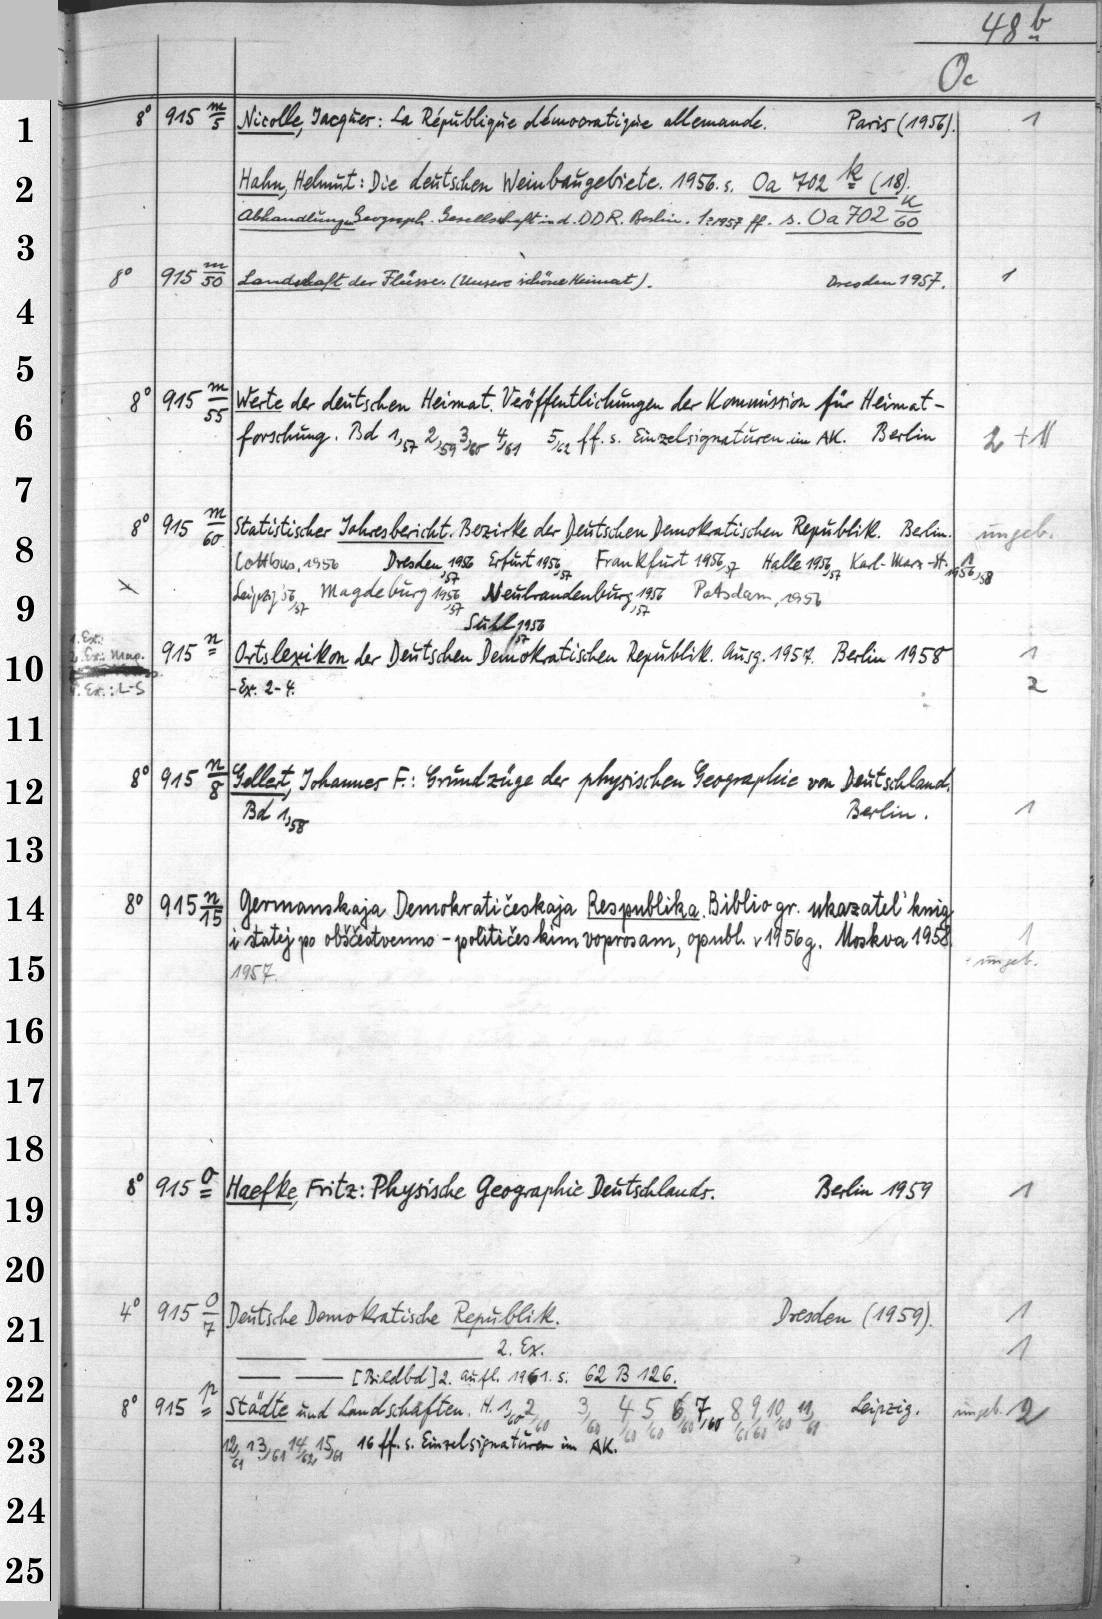 48 b
Oc
1 8° 915 m/5 Nicolle, Jacques: La République démocratique allemande. Paris (1956). 1
2 Hahn, Helmut: Die deutschen Weinbaugebiete. 1956. s. Oa 702 k (18).
Abhandlungen Geograph. Gesellschaft in d. DDR. Berlin. 1:1957 ff. s. Oa 702 k/60
3 8° 915 m/50 Landschaft der Flüsse. (Unsere schöne Heimat). Dresden 1957. 1
4
5
8° 915 m/55 Werte der deutschen Heimat. Veröffentlichungen der Kommission für Heimat-
6 forschung. Bd 1,57 2,59 3,60 4,61 5,62 ff. s. Einzelsignaturen im AK. Berlin 2 + 11
7
8° 915 m/60 Statistischer Jahresbericht. Bezirke der Deutschen Demokratischen Republik. Berlin. ungeb.
8 Cottbus, 1956 Dresden, 1956,57 Erfurt 1956,57 Frankfurt 1956,57 Halle 1956,57 Karl-Marx-St. 1956,58 1
Leipzig 56,57 Magdeburg 1956,57 Neubrandenburg 1956,57 Potsdam, 1956
9 Suhl 1956,57
1. Ex.:
2. Ex.: Mag. 915 n Ortslexikon der Deutschen Demokratischen Republik. Ausg. 1957. Berlin 1958 1
10 Ex.: L-S - Ex. 2-4. 2
11
12 8° 915 n/8 Gellert, Johannes F.: Grundzüge der physischen Geographie von Deutschland.
Bd 1,58 Berlin. 1
13
14 8° 915 n/15 Germanskaja Demokratičeskaja Respublika. Bibliogr. ukazatel' knig
i statej po obščestvenno-političeskim voprosam, opubl. v 1956 g. Moskva 1958 1
15 1957. ungeb.
16
17
18
19 8° 915 o Haefke, Fritz: Physische Geographie Deutschlands. Berlin 1959 1
20
21 4° 915 o/7 Deutsche Demokratische Republik. Dresden (1959). 1
2. Ex. 1
22 [Bildbd] 2. Aufl. 1961. s. 62 B 126.
8° 915 p Städte und Landschaften. H. 1,60 2,60 3,60 4,60 5,60 6,60 7,60 8,61 9,60 10,60 11,61 Leipzig. ungeb. 2
23 12,61 13,61 14,62 15,61 16 ff. s. Einzelsignaturen im AK.
24
25